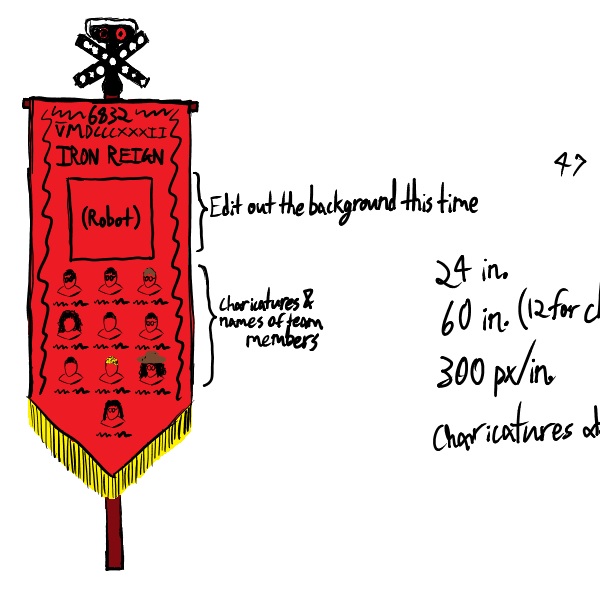 6832
VMDCCCXXXII
IRON REIGN
(Robot)
Edit out the background this time
charicatures &
names of team
members
47
24 in.
60 in. (12 for
300 px/in.
Charicatures